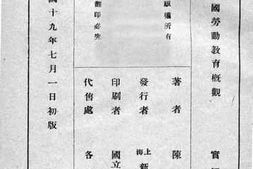 國勞動教育概觀
實
著者
陳
發行者
上海
新
印刷者
國立
代售處
各
版權所有
翻印必究
國十九年七月一日初版